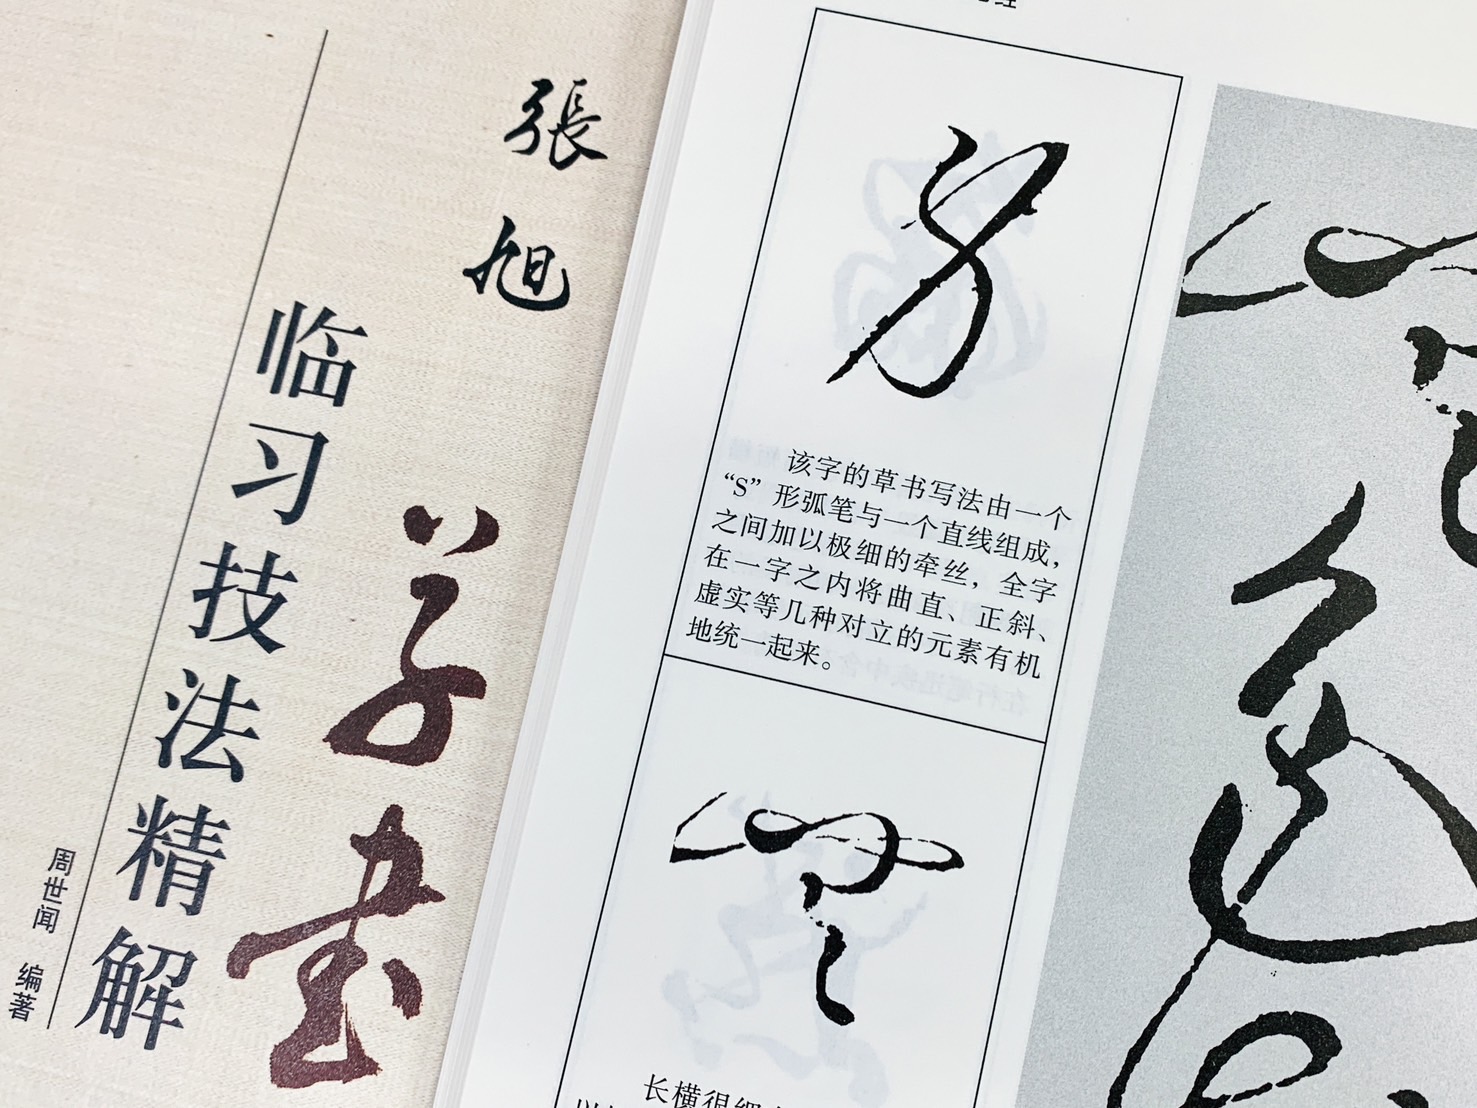 張旭
草书
临习技法精解
周世闻 编著
该字的草书写法由一个
“S”形弧笔与一个直线组成，
之间加以极细的牵丝，全字
在一字之内将曲直、正斜、
虚实等几种对立的元素有机
地统一起来。
长横很细